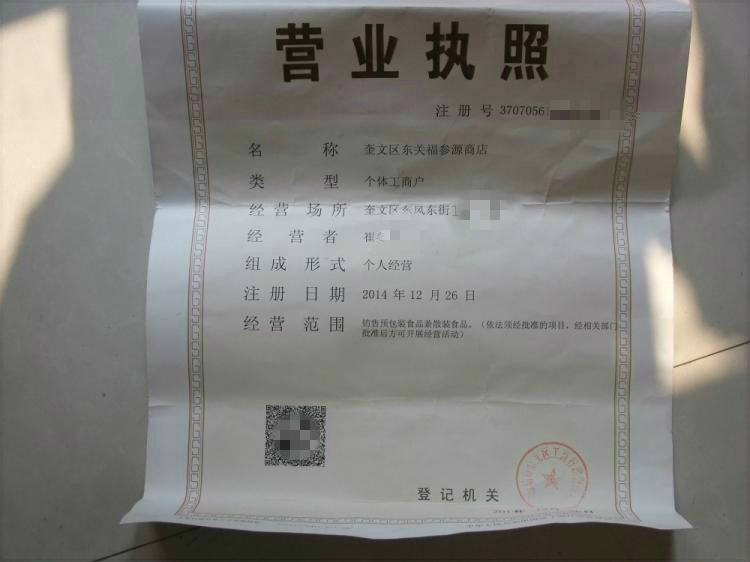 营业执照
注册号 3707056
名称 奎文区东关福参源商店
类型 个体工商户
经营场所 奎文区东风东街
经营者 崔
组成形式 个人经营
注册日期 2014年12月26日
经营范围 销售预包装食品兼散装食品。（依法须经批准的项目，经相关部门
批准后方可开展经营活动）
登记机关